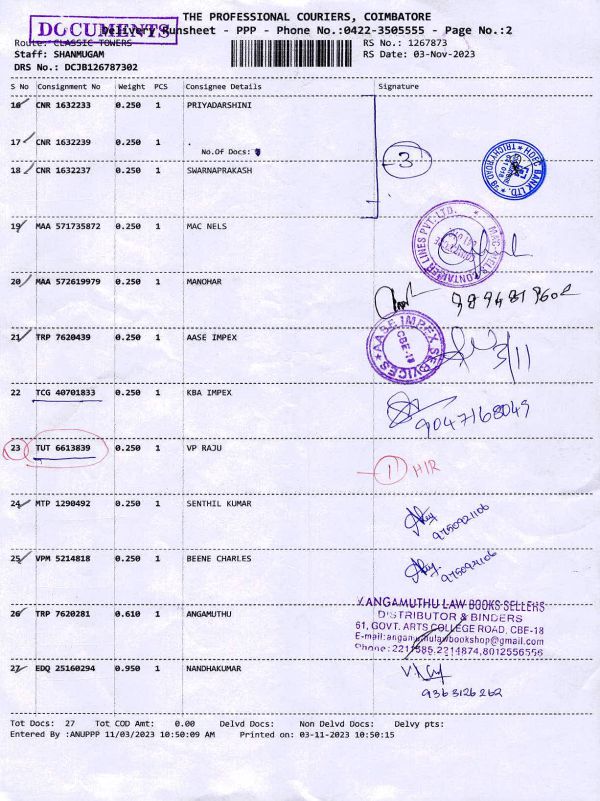 THE PROFESSIONAL COURIERS, COIMBATORE
DOCUMENTS
Delivery Runsheet - PPP - Phone No.:0422-3505555 - Page No.:2
Route: CLASSIC TOWERS
RS No.: 1267873
Staff: SHANMUGAM
RS Date: 03-Nov-2023
DRS No.: DCJB126787302
S No Consignment No Weight PCS Consignee Details Signature
16 CNR 1632233 0.250 1 PRIYADARSHINI
17 CNR 1632239 0.250 1 .
No.Of Docs:
3
18 CNR 1632237 0.250 1 SWARNAPRAKASH
HDFC BANK LTD.
TRICHY ROAD
19 MAA 571735872 0.250 1 MAC NELS
MAC-NELS CONTAINER LINES PVT. LTD.
20 MAA 572619979 0.250 1 MANOHAR
21 TRP 7620439 0.250 1 AASE IMPEX
AASE IMPEX SERVICES
CBE-18
3/11
22 TCG 40701833 0.250 1 KBA IMPEX
9047168049
23 TUT 6613839 0.250 1 VP RAJU
1 HIR
24 MTP 1290492 0.250 1 SENTHIL KUMAR
9750921106
25 VPM 5214818 0.250 1 BEENE CHARLES
9750921106
26 TRP 7620281 0.610 1 ANGAMUTHU
V.ANGAMUTHU LAW BOOKS SELLERS
DISTRIBUTOR & BINDERS
61, GOVT. ARTS COLLEGE ROAD, CBE-18
E-mail:angamuthulawbookshop@gmail.com
Phone: 2211585,2214874,8012556556
27 EDQ 25160294 0.950 1 NANDHAKUMAR
9363126262
Tot Docs: 27 Tot COD Amt: 0.00 Delvd Docs: Non Delvd Docs: Delvy pts:
Entered By :ANUPPP 11/03/2023 10:50:09 AM Printed on: 03-11-2023 10:50:15